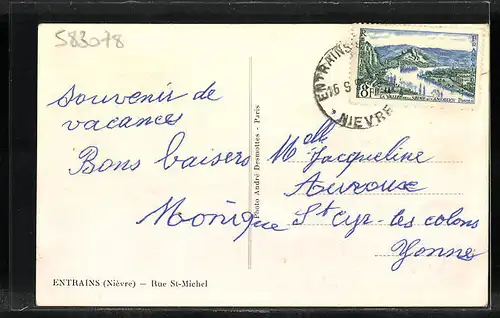 583078
Souvenir de
vacances
Bons baisers
Monique
Photo André Desmottes - Paris
Mlle Jacqueline
Auroux
St Cyr-les colons
Yonne
ENTRAINS
16 9
* NIEVRE
8F
ENTRAINS (Nièvre) — Rue St-Michel